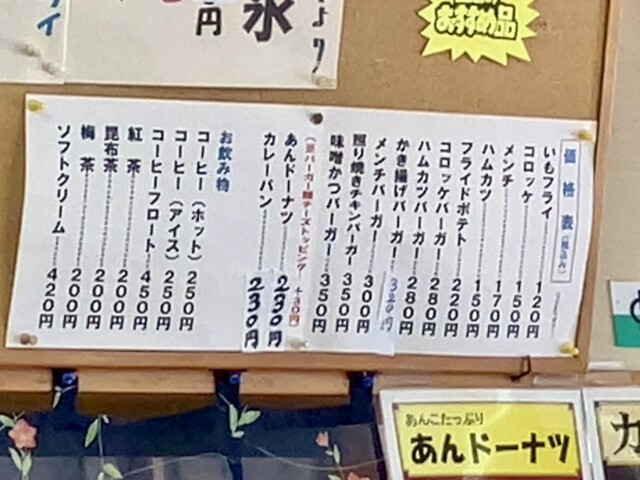 おすすめ品
円
氷
より
イ
価格表(税込み)
いもフライ 120円
コロッケ 150円
メンチ 170円
ハムカツ 150円
フライドポテト 220円
コロッケバーガー 280円
ハムカツバーガー 280円
かき揚げバーガー 320円
メンチバーガー 300円
照り焼きチキンバーガー 350円
味噌かつバーガー 350円
あんドーナツ 230円
カレーパン 230円
お飲み物
コーヒー(ホット) 250円
コーヒー(アイス) 250円
コーヒーフロート 450円
紅茶 200円
昆布茶 200円
梅茶 200円
ソフトクリーム 420円
あんこたっぷり
あんドーナツ
カ